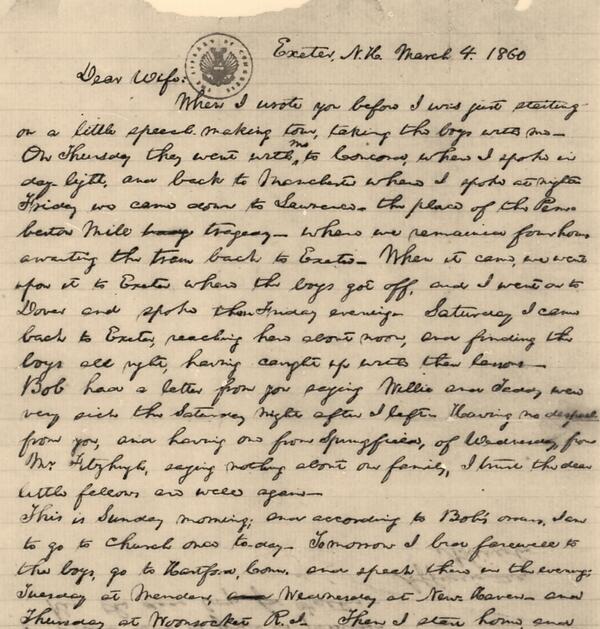 Exeter, N.H. March 4. 1860
Dear Wife:
THE LIBRARY OF CONGRESS
When I wrote you before I was just starting
on a little speech-making tour, taking the boys with me—
On Thursday they went with me to Concord, where I spoke in
day-light, and back to Manchester where I spoke at night.
Friday we came down to Lawrence—the place of the Pem-
berton Mill tragedy—where we remained four hours
awaiting the train back to Exeter—When it came, we went
upon it to Exeter where the boys got off, and I went on to
Dover and spoke there Friday evening—Saturday I came
back to Exeter, reaching here about noon, and finding the
boys all right, having caught up with their lessons—
Bob had a letter from you saying Willie and Taddy were
very sick the Saturday night after I left—Having no despatch
from you, and having one from Springfield, of Wednesday, from
Mr. Fitzhugh, saying nothing about our family, I trust the dear
little fellows are well again—
This is Sunday morning; and according to Bob's orders, I am
to go to church once to-day—Tomorrow I bid farewell to
the boys, go to Hartford, Conn. and speak there in the evening;
Tuesday at Meriden, Wednesday at New-Haven—and
Thursday at Woonsocket R.I—Then I start home, and